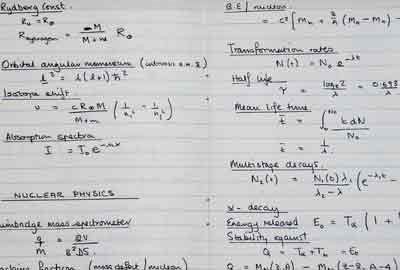 Rydberg Const.
R∞ = R∞
R hydrogen = M / (M + m) R∞
Orbital angular momentum
l² = l(l+1) ħ²
Isotope shift.
υ = cR∞M / (M+m) (1/n₁² - 1/n₂²)
Absorption spectra
I = I₀ e^-nσx
NUCLEAR PHYSICS
mass spectrometer
q/M = 2V / B²DS
fraction (mass defect / nucleon)
B.E / nucleon
= c² [Mn + Z/A (MH - Mn) -
Transformation rates
N(t) = N₀ e^-λt
Half life
τ = loge2 / λ = 0.693 / λ
Mean life time
t̄ = ∫₀^N₀ t dN / N₀
t̄ = 1/λ
Multistage decays.
N₂(t) = N₁(0) λ₁ / (λ₂ - λ) (e^-λ₁t -
α - decay
Energy released E₀ = Tα (1 +
Stability against
Q = Tα + Tb = E₀
Q = Mn(Z,A) - Mn(Z-2, A-4)